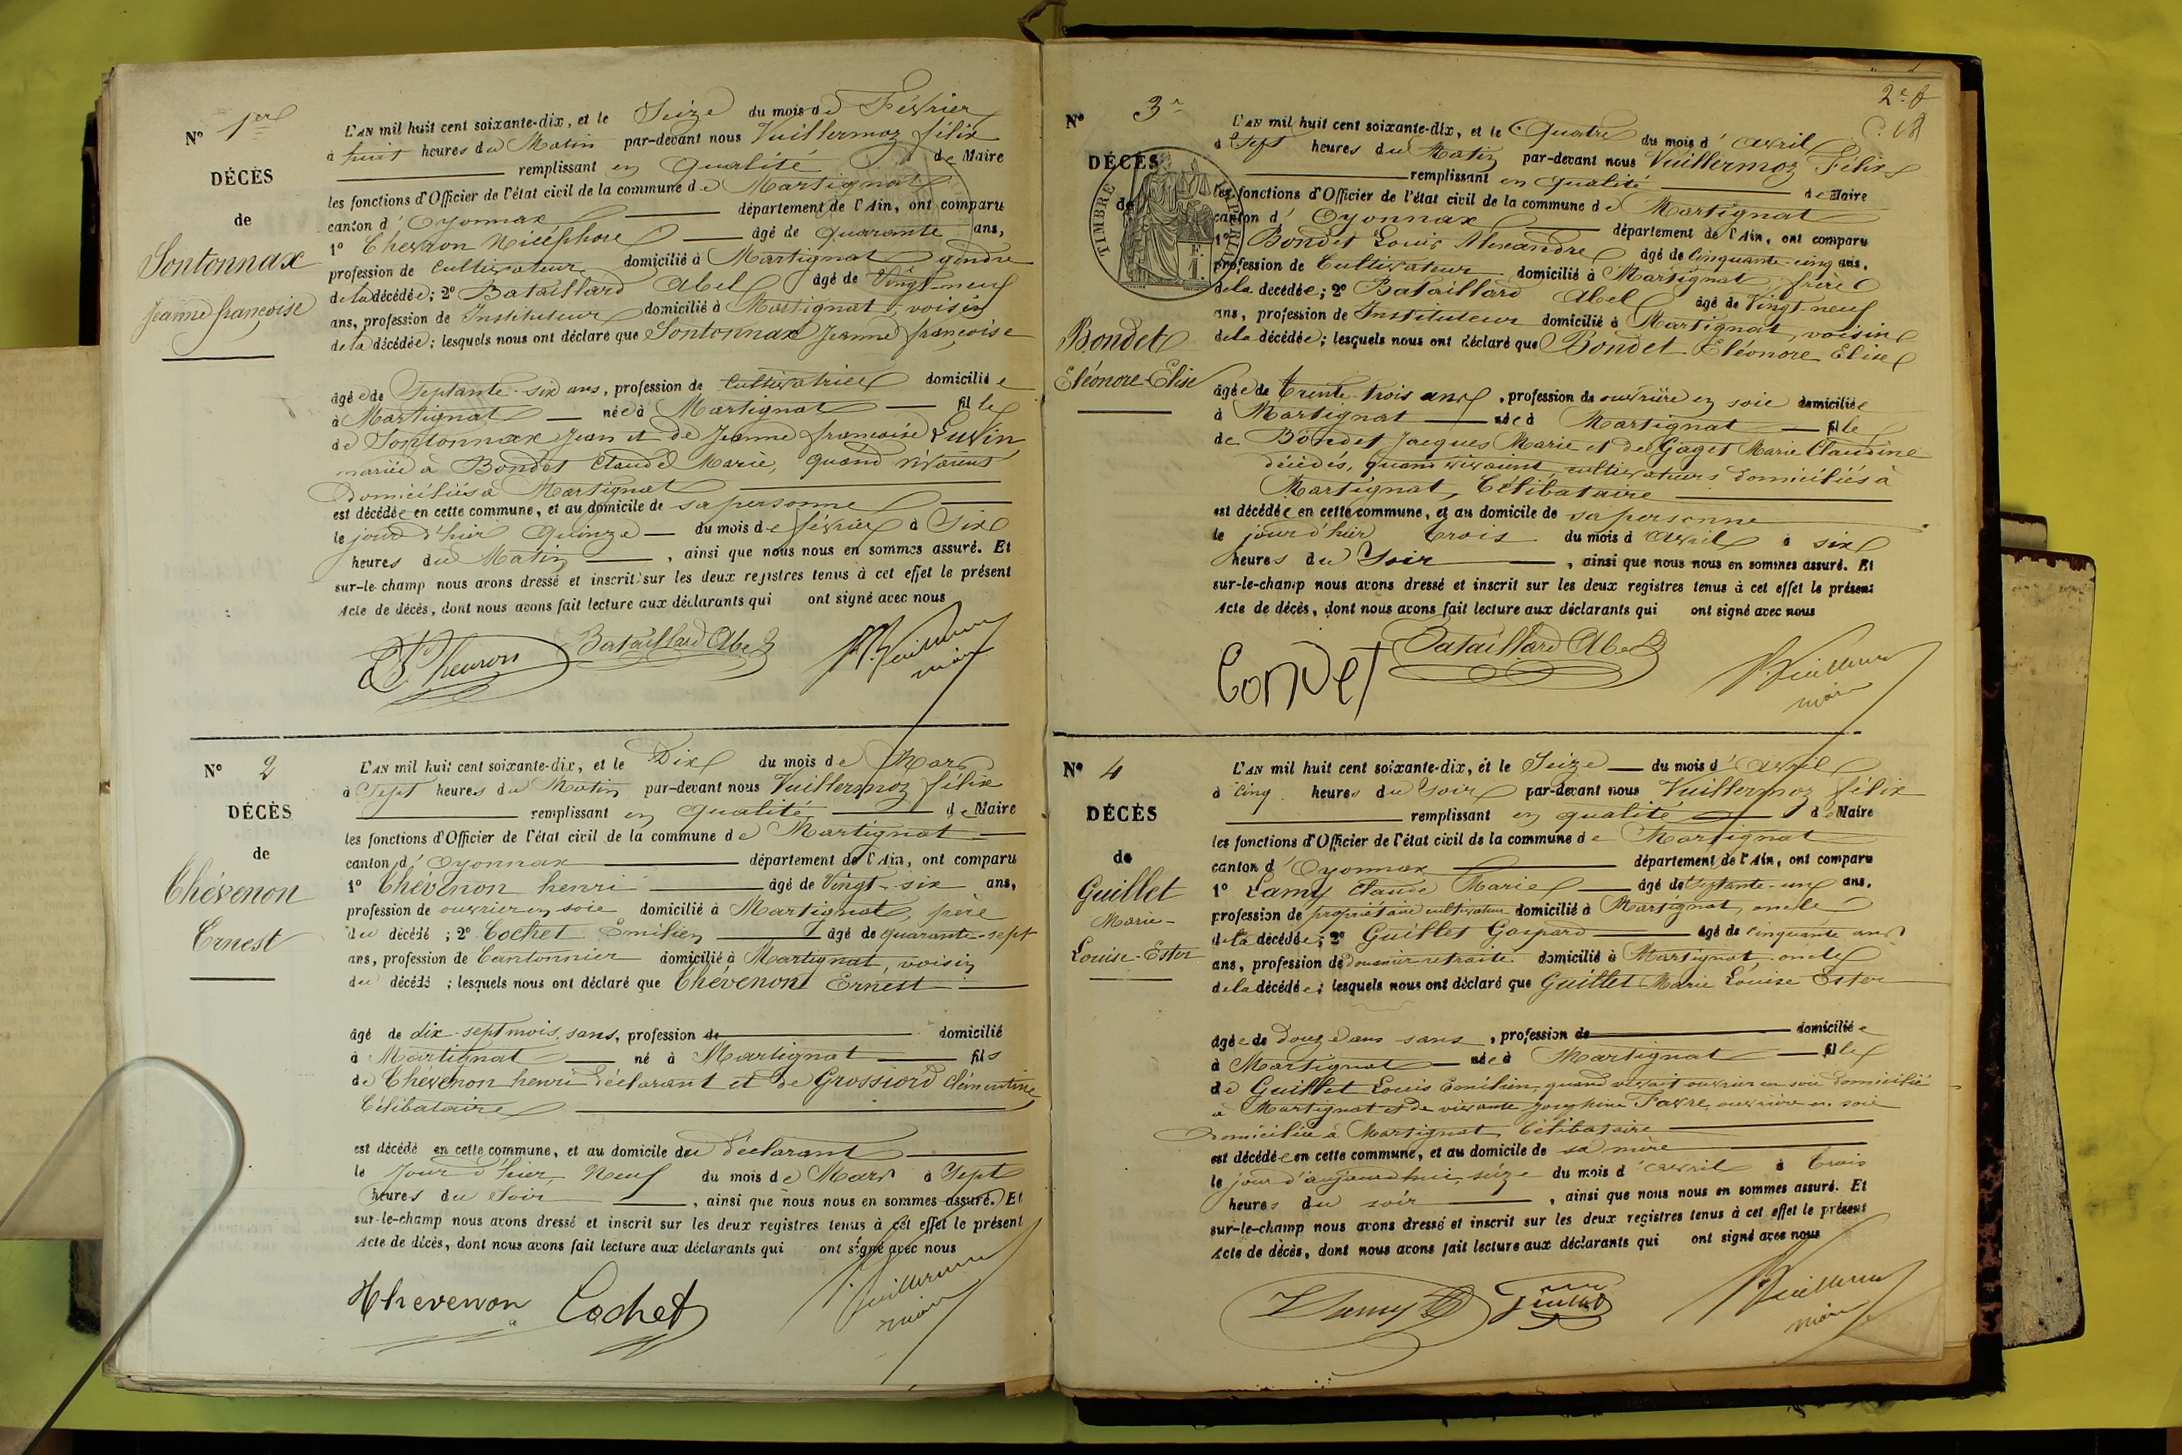 N° 1er
DÉCÈS
de
Sontonnax
Jeanne françoise
L'AN mil huit cent soixante-dix, et le Seize du mois de Février
à huit heures du Matin par-devant nous Vuillermoz félix
remplissant en qualité de Maire
les fonctions d'Officier de l'état civil de la commune de Martignat
canton d'Oyonnax département de l'Ain, ont comparu
1° Chevron Nicéphore âgé de quarante ans,
profession de Cultivateur domicilié à Martignat gendre
de la décédée; 2° Bataillard Abel âgé de Vingt-neuf
ans, profession de Instituteur domicilié à Martignat, voisin
de la décédée; lesquels nous ont déclaré que Sontonnax Jeanne françoise
âgée de Septante-six ans, profession de Cultivatrice domiciliée
à Martignat née à Martignat fille
de Sontonnax Jean et de Jeanne françoise Luvin
mariée à Bondet Claude Marie, quand vivaient
domiciliés à Martignat
est décédée en cette commune, et au domicile de sa personne
le jour d'hier Quinze du mois de février à Six
heures du Matin, ainsi que nous nous en sommes assuré. Et
sur-le-champ nous avons dressé et inscrit sur les deux registres tenus à cet effet le présent
Acte de décès, dont nous avons fait lecture aux déclarants qui ont signé avec nous
Bataillard Abel
maire
N° 2
DÉCÈS
de
Chévenon
Ernest
L'AN mil huit cent soixante-dix, et le Dix du mois de Mars
à Sept heures du Matin par-devant nous Vuillermoz félix
remplissant en qualité de Maire
les fonctions d'Officier de l'état civil de la commune de Martignat
canton d'Oyonnax département de l'Ain, ont comparu
1° Chévenon henri âgé de Vingt-six ans,
profession de ouvrier en soie domicilié à Martignat, père
du décédé; 2° Cochet Emilien âgé de quarante-sept
ans, profession de Cantonnier domicilié à Martignat, voisin
du décédé; lesquels nous ont déclaré que Chévenont Ernest
âgé de dix-sept mois, sans, profession de domicilié
à Martignat né à Martignat fils
de Chévenon henri déclarant et de Grossiord Clémentine
Célibataire
est décédé en cette commune, et au domicile du déclarant
le Jour d'hier, Neuf du mois de Mars à Sept
heures du Soir, ainsi que nous nous en sommes assuré. Et
sur-le-champ nous avons dressé et inscrit sur les deux registres tenus à cet effet le présent
Acte de décès, dont nous avons fait lecture aux déclarants qui ont signé avec nous
Chevenon Cochet
maire
2e f
N° 3
DÉCÈS
de
TIMBRE IMPÉRIAL
Bondet
Eléonore-Elise
L'AN mil huit cent soixante-dix, et le Quatre du mois d'avril
à Sept heures du Matin par-devant nous Vuillermoz Félix
remplissant en qualité de Maire
les fonctions d'Officier de l'état civil de la commune de Martignat
canton d'Oyonnax département de l'Ain, ont comparu
1° Bondet Louis Alexandre âgé de Cinquante-cinq ans,
profession de Cultivateur domicilié à Martignat, frère
de la décédée; 2° Bataillard Abel âgé de Vingt-neuf
ans, profession de Instituteur domicilié à Martignat, voisin
de la décédée; lesquels nous ont déclaré que Bondet Eléonore Elise
âgée de trente-trois ans, profession de ouvrière en soie domiciliée
à Martignat née à Martignat fille
de Bondet Jacques Marie et de Gaget Marie Claudine
décédés, quand vivaient, cultivateurs domiciliés à
Martignat, Célibataire
est décédée en cette commune, et au domicile de sa personne
le jour d'hier trois du mois d'avril à six
heures du Soir, ainsi que nous nous en sommes assuré. Et
sur-le-champ nous avons dressé et inscrit sur les deux registres tenus à cet effet le présent
Acte de décès, dont nous avons fait lecture aux déclarants qui ont signé avec nous
Bondet Bataillard Abel
maire
N° 4
DÉCÈS
de
Guillet
Marie-
Louise-Ester
L'AN mil huit cent soixante-dix, et le Seize du mois d'avril
à Cinq heures du Soir par-devant nous Vuillermoz félix
remplissant en qualité de Maire
les fonctions d'Officier de l'état civil de la commune de Martignat
canton d'Oyonnax département de l'Ain, ont comparu
1° Lamy Claude Marie âgé de Septante-un ans,
profession de propriétaire cultivateur domicilié à Martignat, oncle
de la décédée; 2° Guillet Gaspard âgé de cinquante ans
ans, profession de douanier retraité domicilié à Martignat oncle
de la décédée; lesquels nous ont déclaré que Guillet Marie Louise Ester
âgée de douze ans sans, profession de domiciliée
à Martignat née à Martignat fille
de Guillet Louis Emilien, quand vivait ouvrier en soie domicilié
à Martignat et de vivante Josephine Favre, ouvrière en soie
domiciliée à Martignat, Célibataire
est décédée en cette commune, et au domicile de sa mère
le jour d'aujourd'hui, seize du mois d'avril à trois
heures du soir, ainsi que nous nous en sommes assuré. Et
sur-le-champ nous avons dressé et inscrit sur les deux registres tenus à cet effet le présent
Acte de décès, dont nous avons fait lecture aux déclarants qui ont signé avec nous
Lamy Guillet
maire